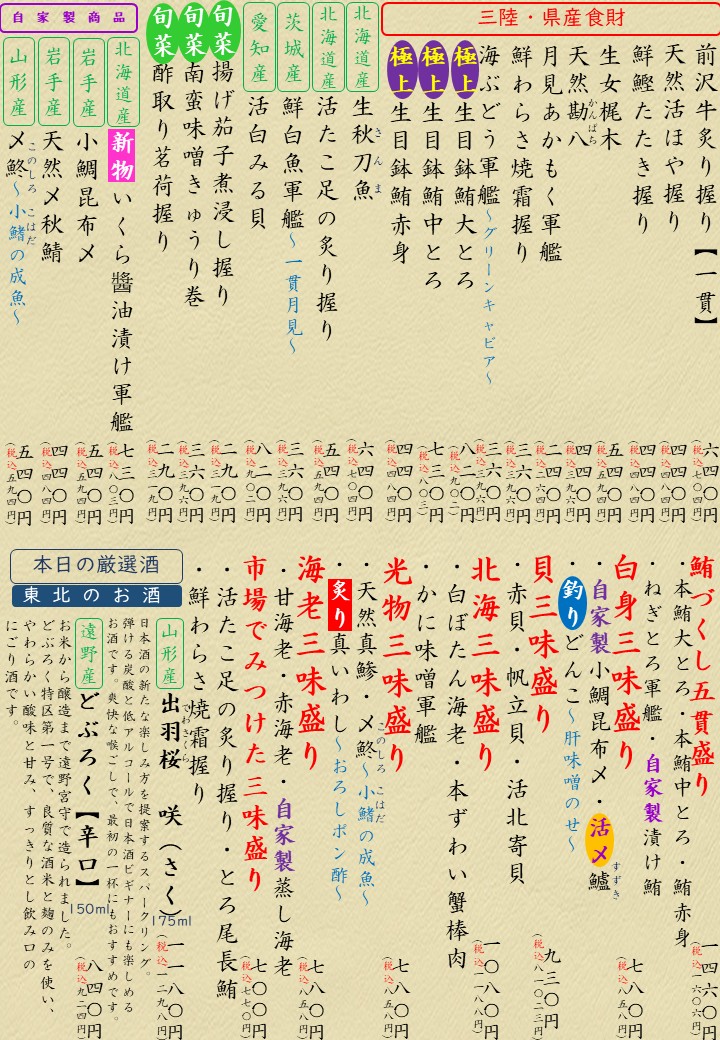 三陸・県産食財
前沢牛炙り握り【一貫】 六四〇円 (税込七〇四円)
天然活ほや握り 四四〇円 (税込四八四円)
鮮鰹たたき握り 四四〇円 (税込四八四円)
生女梶木 五四〇円 (税込五九四円)
天然勘八 かんぱち 四四〇円
月見あかもく軍艦 二四〇円 (税込二六四円)
鮮わらさ焼霜握り 三六〇円 (税込三九六円)
海ぶどう軍艦～グリーンキャビア～ 三六〇円 (税込三九六円)
極上 生目鉢鮪大とろ 八二〇円 (税込九〇二円)
極上 生目鉢鮪中とろ 七三〇円 (税込八〇三円)
極上 生目鉢鮪赤身 四四〇円 (税込四八四円)
北海道産 生秋刀魚 さんま 六四〇円 (税込七〇四円)
北海道産 活たこ足の炙り握り 五四〇円 (税込五九四円)
茨城産 鮮白魚軍艦～一貫月見～ 三六〇円 (税込三九六円)
愛知産 活白みる貝 八二〇円 (税込九〇二円)
旬菜 揚げ茄子煮浸し握り 二九〇円 (税込三一九円)
旬菜 南蛮味噌きゅうり巻 三六〇円 (税込三九六円)
旬菜 酢取り茗荷握り 二九〇円 (税込三一九円)
自家製商品
北海道産 新物 いくら醬油漬け軍艦 七三〇円 (税込八〇三円)
岩手産 小鯛昆布〆 五四〇円 (税込五九四円)
岩手産 天然〆秋鯖 四四〇円 (税込四八四円)
山形産 〆鮗 このしろ ～小鰭 こはだ の成魚～ 五四〇円 (税込五九四円)
鮪づくし五貫盛り 一四六〇円 (税込一六〇六円)
・本鮪大とろ・本鮪中とろ・鮪赤身
・ねぎとろ軍艦・自家製漬け鮪
白身三味盛り 七八〇円 (税込八五八円)
・自家製小鯛昆布〆・活〆鱸 すずき
・釣りどんこ～肝味噌のせ～
貝三味盛り 九三〇円 (税込八一〇二三円)
・赤貝・帆立貝・活北寄貝
北海三味盛り 一〇八〇円 (税込一一八八円)
・白ぼたん海老・本ずわい蟹棒肉
・かに味噌軍艦
光物三味盛り 七八〇円 (税込八五八円)
・天然真鯵・〆鮗 このしろ ～小鰭 こはだ の成魚～
・炙り真いわし～おろしポン酢～
海老三味盛り 七八〇円 (税込八五八円)
・甘海老・赤海老・自家製蒸し海老
市場でみつけた三味盛り 七〇〇円 (税込七七〇円)
・活たこ足の炙り握り・とろ尾長鮪
・鮮わらさ焼霜握り
本日の厳選酒
東北のお酒
山形産 出羽桜 でわざくら 咲(さく) 175ml 一一八〇円 (税込一二九八円)
日本酒の新たな楽しみ方を提案するスパークリング。
弾ける炭酸と低アルコールで日本酒ビギナーにも楽しめる
お酒です。爽快な喉ごしで、最初の一杯にもおすすめです。
遠野産 どぶろく【辛口】 150ml 八四〇円 (税込九二四円)
お米から醸造まで遠野宮守で造られました。
どぶろく特区第一号で、良質な酒米と麹のみを使い、
やわらかい酸味と甘み、すっきりとし飲み口の
にごり酒です。